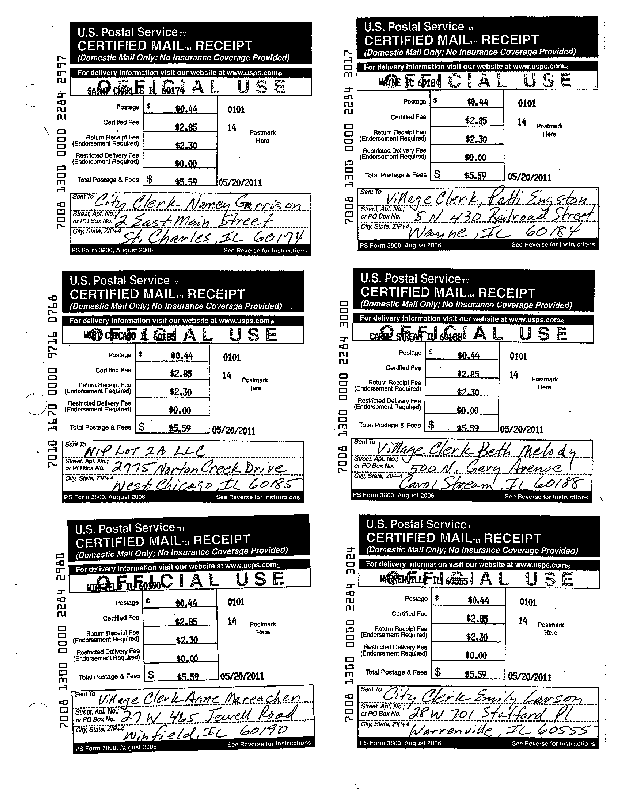 U.S. Postal Service TM
CERTIFIED MAIL TM RECEIPT
(Domestic Mail Only; No Insurance Coverage Provided)
For delivery information visit our website at www.usps.com
OFFICIAL USE
SAINT CHARLES IL 60174
Postage $ $0.44 0101
Certified Fee $2.85 14 Postmark Here
Return Receipt Fee (Endorsement Required) $2.30
Restricted Delivery Fee (Endorsement Required) $0.00
Total Postage & Fees $ $5.59 05/20/2011
Sent To City Clerk Nancy Garrison
Street, Apt. No.; or PO Box No. 2 East Main Street
City, State, ZIP+4 St. Charles, IL 60174
PS Form 3800, August 2006 See Reverse for Instructions
U.S. Postal Service TM
CERTIFIED MAIL TM RECEIPT
(Domestic Mail Only; No Insurance Coverage Provided)
For delivery information visit our website at www.usps.com
OFFICIAL USE
WAYNE IL 60184
Postage $ $0.44 0101
Certified Fee $2.85 14 Postmark Here
Return Receipt Fee (Endorsement Required) $2.30
Restricted Delivery Fee (Endorsement Required) $0.00
Total Postage & Fees $ $5.59 05/20/2011
Sent To Village Clerk, Patti Engston
Street, Apt. No.; or PO Box No. 5 N 430 Railroad Street
City, State, ZIP+4 Wayne, IL 60184
PS Form 3800, August 2006 See Reverse for Instructions
7010 1670 0000 9716 0766
U.S. Postal Service TM
CERTIFIED MAIL TM RECEIPT
(Domestic Mail Only; No Insurance Coverage Provided)
For delivery information visit our website at www.usps.com
OFFICIAL USE
WEST CHICAGO IL 60185
Postage $ $0.44 0101
Certified Fee $2.85 14 Postmark Here
Return Receipt Fee (Endorsement Required) $2.30
Restricted Delivery Fee (Endorsement Required) $0.00
Total Postage & Fees $ $5.59 05/20/2011
Sent To NIP LOT 2A LLC
Street, Apt. No.; or PO Box No. 2775 Norton Creek Drive
City, State, ZIP+4 West Chicago, IL 60185
PS Form 3800, August 2006 See Reverse for Instructions
U.S. Postal Service TM
CERTIFIED MAIL TM RECEIPT
(Domestic Mail Only; No Insurance Coverage Provided)
For delivery information visit our website at www.usps.com
OFFICIAL USE
CAROL STREAM IL 60188
Postage $ $0.44 0101
Certified Fee $2.85 14 Postmark Here
Return Receipt Fee (Endorsement Required) $2.30
Restricted Delivery Fee (Endorsement Required) $0.00
Total Postage & Fees $ $5.59 05/20/2011
Sent To Village Clerk Beth Melody
Street, Apt. No.; or PO Box No. 500 N. Gary Avenue
City, State, ZIP+4 Carol Stream, IL 60188
PS Form 3800, August 2006 See Reverse for Instructions
U.S. Postal Service TM
CERTIFIED MAIL TM RECEIPT
(Domestic Mail Only; No Insurance Coverage Provided)
For delivery information visit our website at www.usps.com
OFFICIAL USE
WINFIELD IL 60190
Postage $ $0.44 0101
Certified Fee $2.85 14 Postmark Here
Return Receipt Fee (Endorsement Required) $2.30
Restricted Delivery Fee (Endorsement Required) $0.00
Total Postage & Fees $ $5.59 05/20/2011
Sent To Village Clerk Anne Mareachen
Street, Apt. No.; or PO Box No. 27 W 465 Jewell Road
City, State, ZIP+4 Winfield, IL 60190
PS Form 3800, August 2006 See Reverse for Instructions
U.S. Postal Service TM
CERTIFIED MAIL TM RECEIPT
(Domestic Mail Only; No Insurance Coverage Provided)
For delivery information visit our website at www.usps.com
OFFICIAL USE
WARRENVILLE IL 60555
Postage $ $0.44 0101
Certified Fee $2.85 14 Postmark Here
Return Receipt Fee (Endorsement Required) $2.30
Restricted Delivery Fee (Endorsement Required) $0.00
Total Postage & Fees $ $5.59 05/20/2011
Sent To City Clerk Emily Larson
Street, Apt. No.; or PO Box No. 28 W 701 Stafford Pl
City, State, ZIP+4 Warrenville, IL 60555
PS Form 3800, August 2006 See Reverse for Instructions